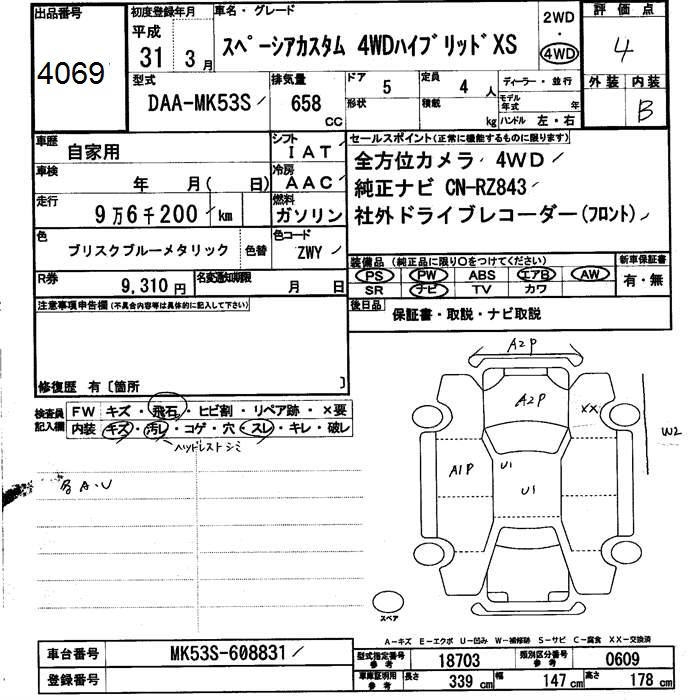 出品番号
4069
初度登録年月
平成
31 3月
車名・グレード
スペーシアカスタム 4WDハイブリッドXS
2WD
・
4WD
評価点
4
型式
DAA-MK53S
排気量
658
CC
ドア
5
形状
定員
4人
積載
kg
ディーラー・並行
モデル年式
年
ハンドル 左・右
外装
内装
B
車歴
自家用
シフト
IAT
車検
年 月( 日)
冷房
AAC
走行
9万6千200km
燃料
ガソリン
色
ブリスクブルーメタリック
色替
色コード
ZWY
R券
9,310円
名変通知期限
月 日
セールスポイント(正常に機能するものに限ります)
全方位カメラ 4WD
純正ナビ CN-RZ843
社外ドライブレコーダー(フロント)
装備品 (純正品に限り○をつけてください)
PS PW ABS エアB AW
SR ナビ TV カワ
新車保証書
有・無
後日品
保証書・取説・ナビ取説
注意事項申告欄(不具合内容等は具体的に記入して下さい)
修復歴 有〔箇所 〕
検査員記入欄
FW キズ・飛石・ヒビ割・リペア跡・×要
内装 キズ・汚レ・コゲ・穴・スレ・キレ・破レ
ヘッドレストシミ
A2P
A2P
XX
W2
A1P
U1
U1
スペア
A-キズ E-エクボ U-凹み W-補修跡 S-サビ C-腐食 XX-交換済
車台番号
MK53S-608831
登録番号
型式指定番号
参考
18703
類別区分番号
参考
0609
車庫証明用
参考
長さ
339 cm
幅
147 cm
高さ
178 cm